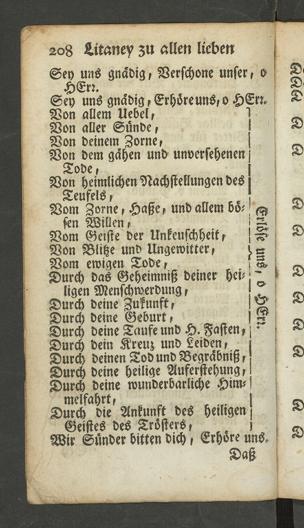 208 Litaney zu allen lieben
Sey uns gnädig, Verschone unser, o
HErr.
Sey uns gnädig, Erhöre uns, o HErr.
Von allem Uebel,
Von aller Sünde,
Von deinem Zorne,
Von dem gähen und unversehenen
Tode,
Von heimlichen Nachstellungen des
Teufels,
Vom Zorne, Haße, und allem bö-
sen Willen,
Vom Geiste der Unkeuschheit,
Von Blitze und Ungewitter,
Vom ewigen Tode,
Durch das Geheimniß deiner hei-
ligen Menschwerdung,
Durch deine Zukunft,
Durch deine Geburt,
Durch deine Taufe und H. Fasten,
Durch dein Kreuz und Leiden,
Durch deinen Tod und Begräbniß,
Durch deine heilige Auferstehung,
Durch deine wunderbarliche Him-
melfahrt,
Durch die Ankunft des heiligen
Geistes des Trösters,
Erlöse uns, o HErr.
Wir Sünder bitten dich, Erhöre uns.
Daß